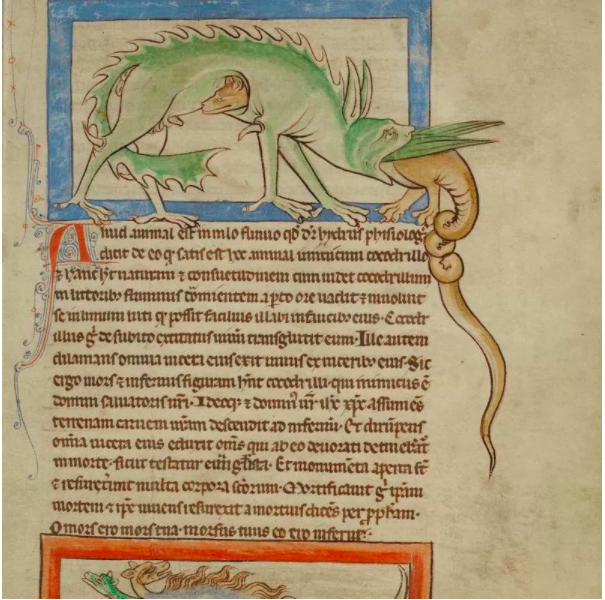 Aliud animal est in nilo fluuio qđ dr̄ hydrus phisiolog᷒
dicit de eo qꝛ satis est hoc animal inimicum cocodrillo
⁊ hanc ħt naturam ⁊ consuetudinem cum uidet cocodrillum
in littoribꝫ fluminis dormientem apto ore uadit ⁊ inuoluit
se in limum luti qͦ possit facilius illabi in faucibꝫ eius. Cocodr
illus gͦ de subito excitatus uiuum transglutit eum. Ille autem
dilanians omnia uiscera eius exit uiuus ex uisceribꝫ eius. Sic
ergo mors ⁊ infernus figuram hn̄t cocodrilli. qui inimicus ē
domini saluatoris nr̄i. Ideoqꝫ ⁊ dominꝰ nr̄ iħc xp̄c assumēs
terrenam carnem nr̄am descendit ad infernū. Et dirūpens
om̄ia uiscera eius eduxit om̄s qui ab eo deuorati detinebāt᷒
in morte. sicut testatur euāg̅lista. Et monumēta aperta sт̄
⁊ resurrexerunt multa corpora sc̄orum. Mortificauit gͦ ipsam
mortem ⁊ ipse uiuens resurexit a mortuis dicēs per ꝓpham.
O mors ero mors tua. morsus tuus ero inferne.